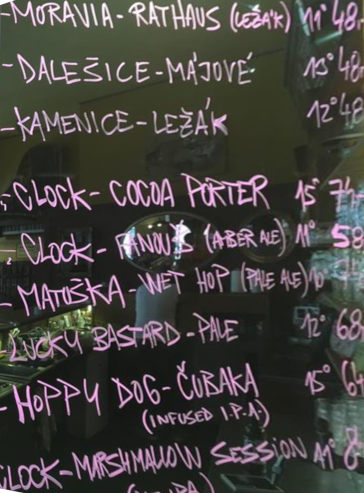 -MORAVIA-RATHAUS (LEŽÁK) 11° 48.
-DALEŠICE-MÁJOVÉ 13° 48.
-KAMENICE-LEŽÁK 12° 48.
CLOCK-COCOA PORTER 15°
CLOCK- (AMBER ALE) 11° 58
-MATUŠKA-WET HOP (PALE ALE)
LUCKY BASTARD-PALE 12° 68
-HOPPY DOG-ČUBAKA 15°
(INFUSED I.P.A.)
CLOCK-MARSHMALLOW SESSION 11° 8